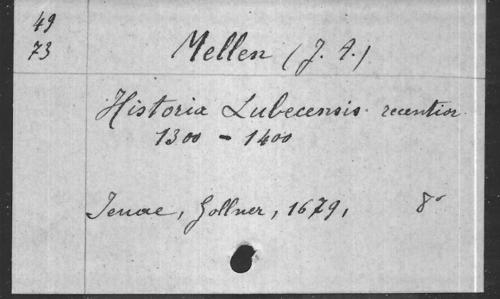 49
73
Mellen (J. A.)
Historia Lubecensis recentior
1300 - 1400
Jenae, Gollner, 1679, 8°